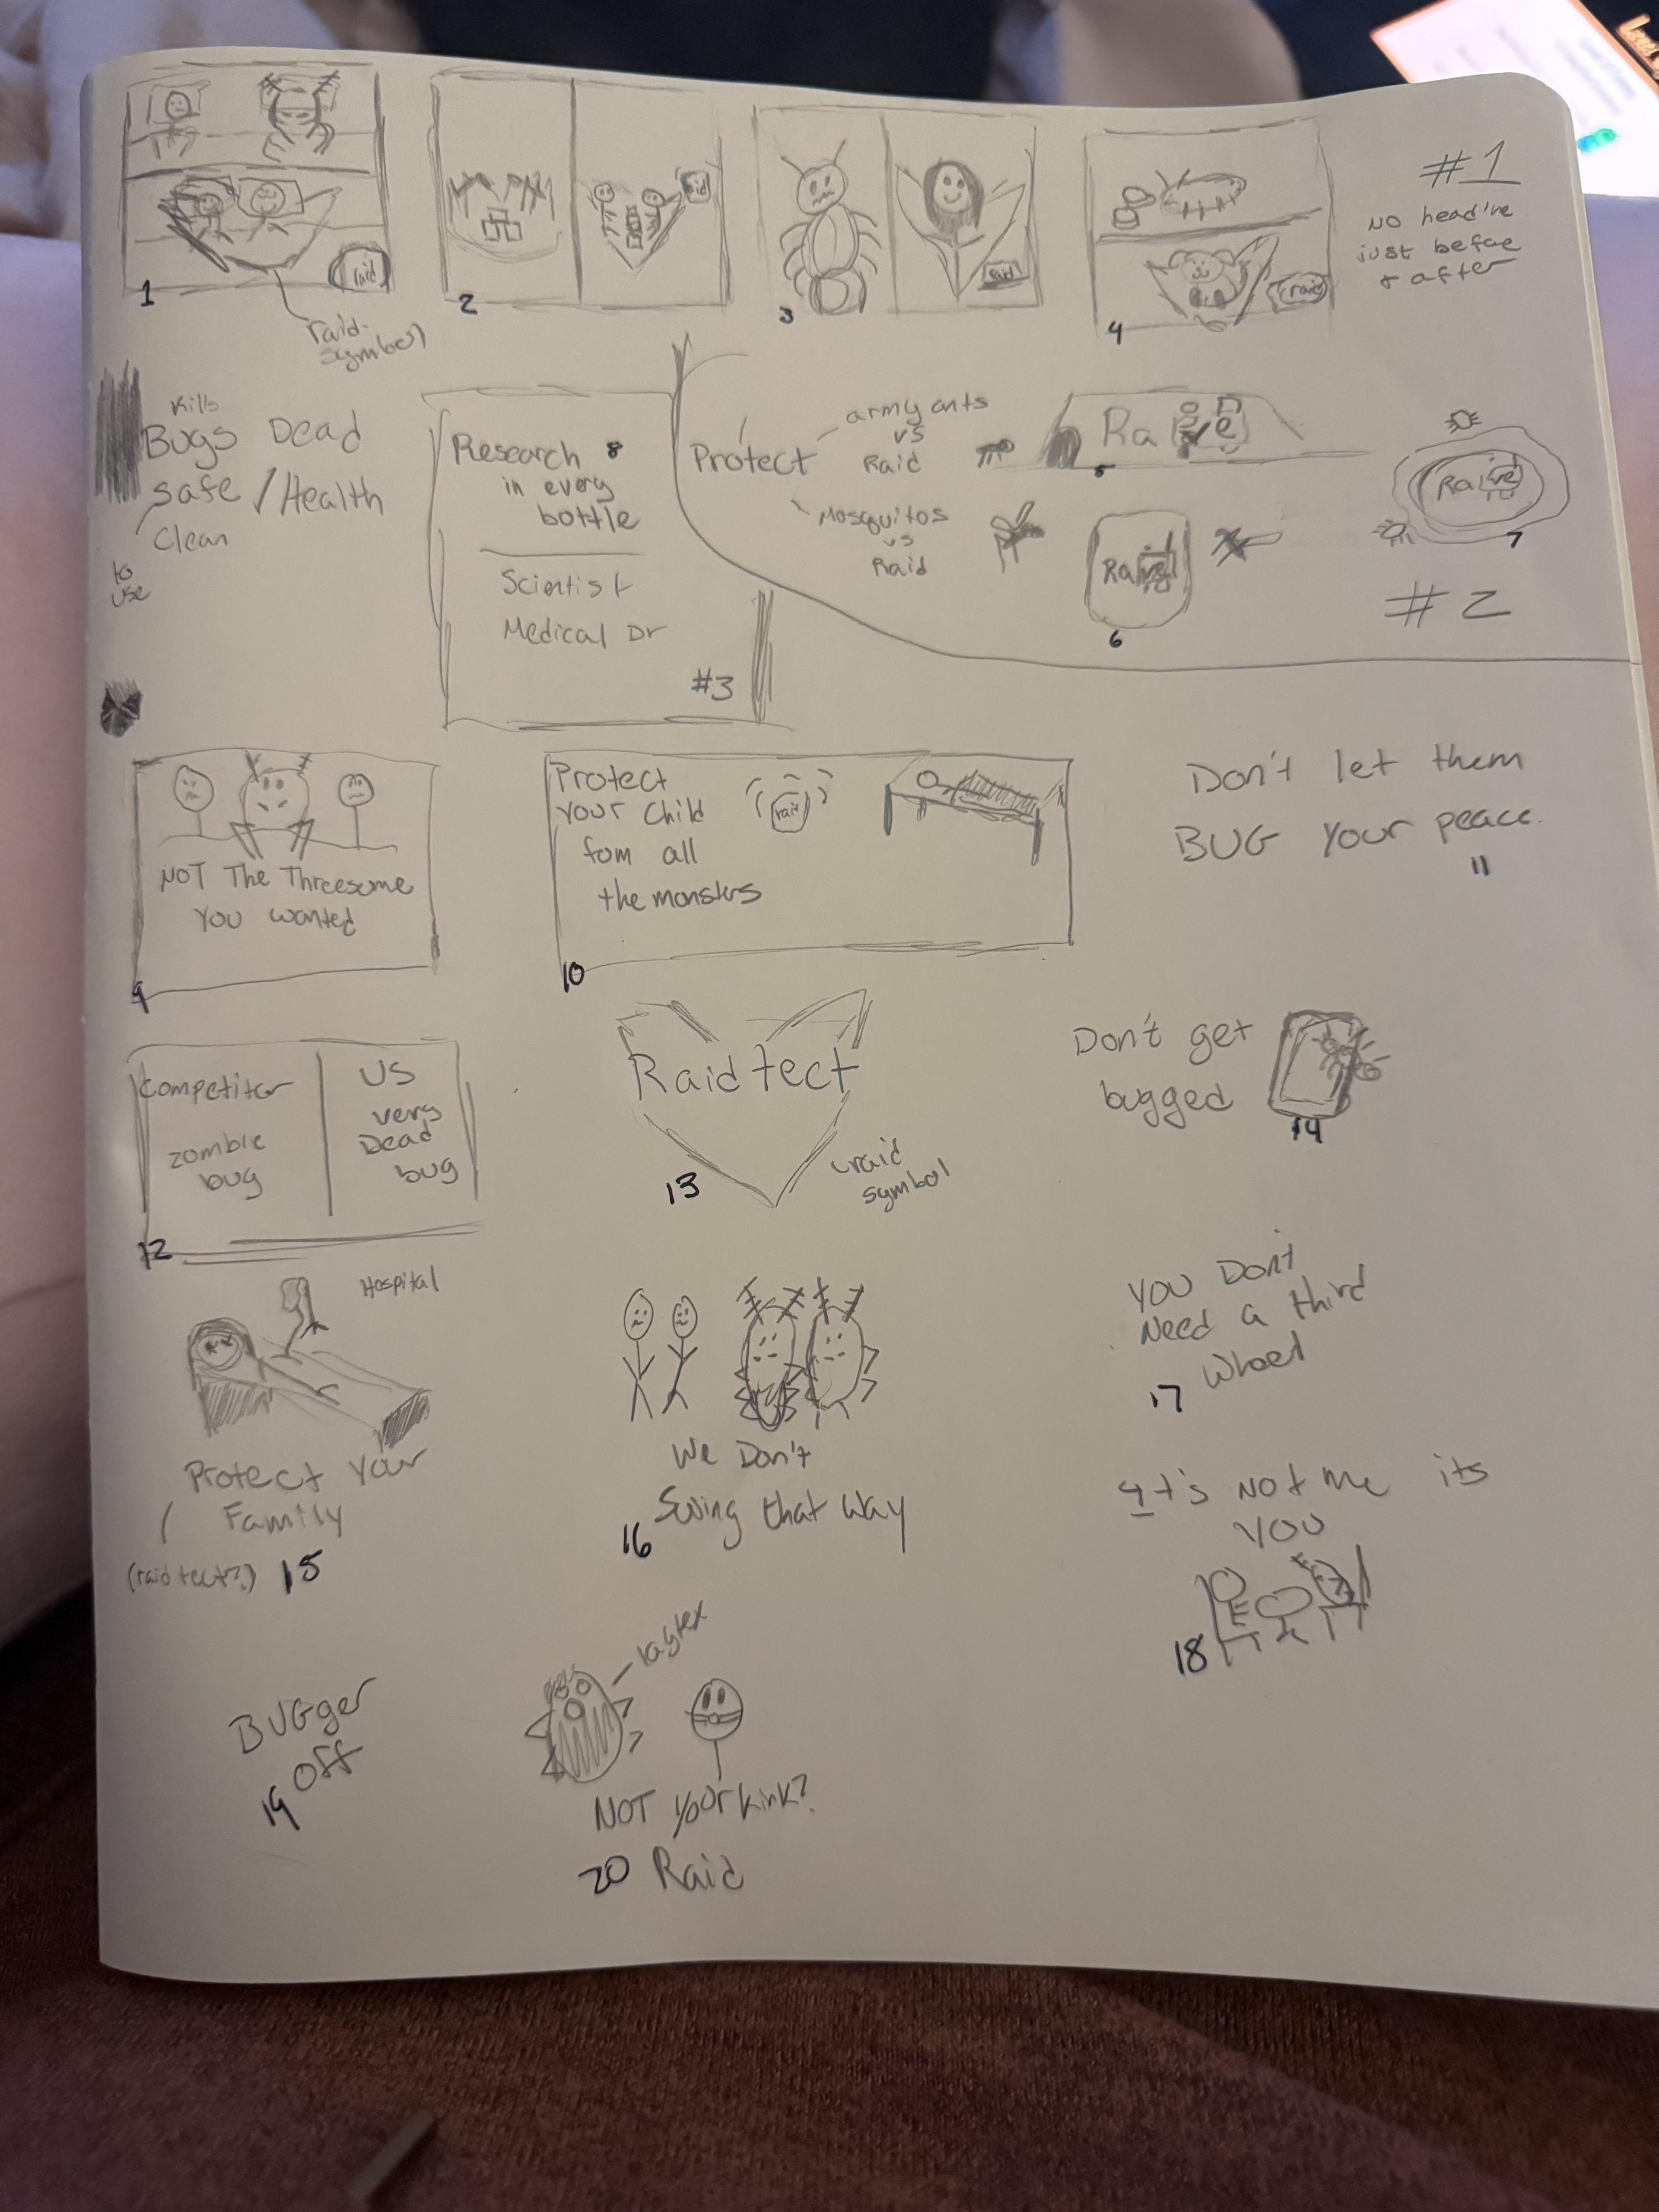 1
raid
raid-
symbol
2
raid
3
raid
4
raid
#1
NO head'ne
just before
+ after
Kills
Bugs Dead
Safe / Health
Clean
to
use
Research 8
in every
bottle
Scientist
Medical Dr
#3
Protect
army ants
vs
Raid
Mosquitos
vs
Raid
5
6
7
#2
NOT The Threesome
You wanted
9
Protect
your Child
fom all
the monsters
raid
10
Don't let them
BUG Your peace.
11
Competitor
zombie
bug
US
very
Dead
bug
12
Raid tect
raid
symbol
13
Don't get
bugged
14
Hospital
Protect Your
Family
(raid tect?) 15
We Don't
Swing that way
16
You Don't
Need a third
Wheel
17
It's Not me its
YOU
18
BUGger
Off
19
NOT Your kink?
20 Raid